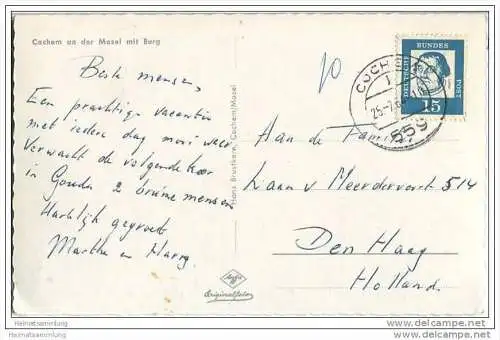 Cochem an der Mosel mit Burg
Beste mensen,
Een prachtige vacantie
met iedere dag mooi weer
Verwacht de volgende keer
in Gouda 2 bruine mensen
Hartelijk gegroet
Martha en Harry.
Hans Brustkern, Cochem/Mosel
Agfa
Originalfoto
10
COCHEM
25.-7.6
559
DEUTSCHE
BUNDES
POST
15
Aan de Familie
Laan v Meerdervoort 514
Den Haag
Holland.
Heimatsammlung
Heimatsammlung
http://heimatsammlung.delcampe.net